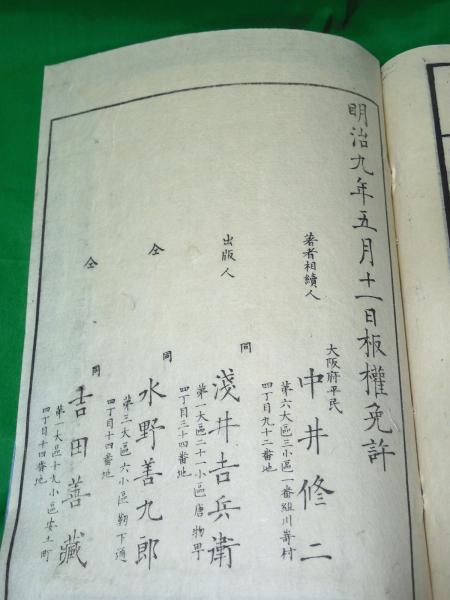 明治九年五月十一日板權免許
著者相續人
大阪府平民
中井修二
第六大區三小區一番組川嵜村
四丁目九十二番地
出版人
同
淺井吉兵衛
第一大區二十一小區唐物町
四丁目三十四番地
仝
同
水野善九郎
第三大區六小區勒下通
四丁目十四番地
仝
同
吉田善藏
第一大區十九小區安土町
四丁目十四番地